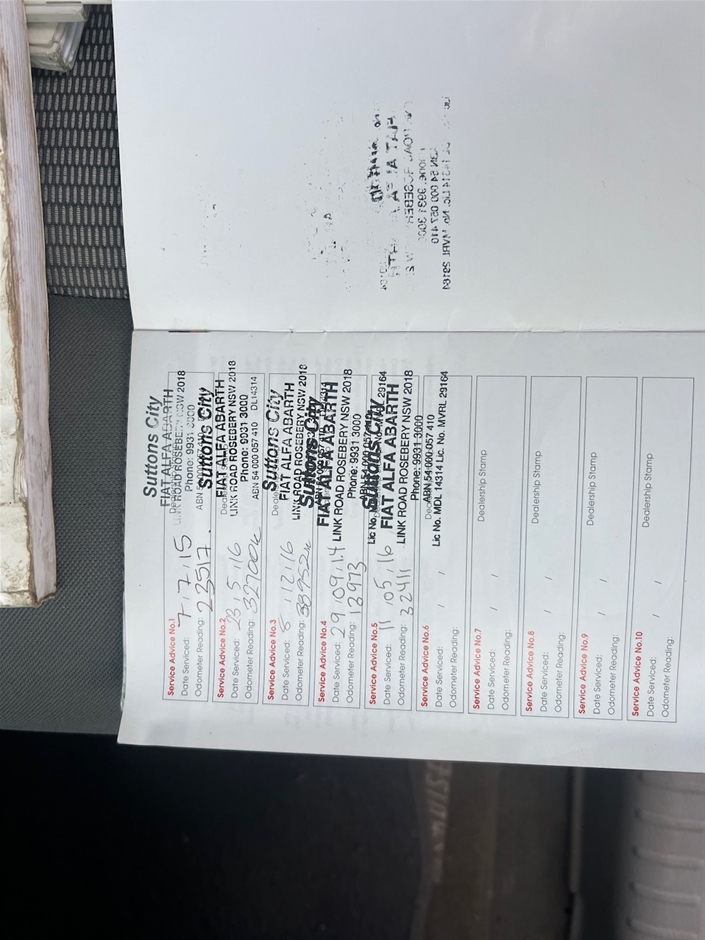 Service Advice No.1
Date Serviced: 7.7.15
Odometer Reading: 23517.
Suttons City
FIAT ALFA ABARTH
LINK ROAD ROSEBERY NSW 2018
Phone: 9931 3000
ABN
Service Advice No.2
Date Serviced: 23.5.16
Odometer Reading: 32700k
Suttons City
FIAT ALFA ABARTH
LINK ROAD ROSEBERY NSW 2018
Phone: 9931 3000
ABN 54 000 057 410 DL14314
Service Advice No.3
Date Serviced: 8.12.16
Odometer Reading:
Suttons City
FIAT ALFA ABARTH
LINK ROAD ROSEBERY NSW 2018
Service Advice No.4
Date Serviced: 29.09.14
Odometer Reading: 12973
Suttons City
FIAT ALFA ABARTH
LINK ROAD ROSEBERY NSW 2018
Phone: 9931 3000
Lic No. 29164
Service Advice No.5
Date Serviced: 11.05.16
Odometer Reading: 32411
Suttons City
FIAT ALFA ABARTH
LINK ROAD ROSEBERY NSW 2018
Phone: 9931 3000
ABN 54 000 057 410
Lic No. MDL 14314 Lic. No. MVRL 29164
Service Advice No.6
Date Serviced: / /
Odometer Reading:
Service Advice No.7
Date Serviced: / /
Odometer Reading:
Dealership Stamp
Service Advice No.8
Date Serviced: / /
Odometer Reading:
Dealership Stamp
Service Advice No.9
Date Serviced: / /
Odometer Reading:
Dealership Stamp
Service Advice No.10
Date Serviced: / /
Odometer Reading:
Dealership Stamp